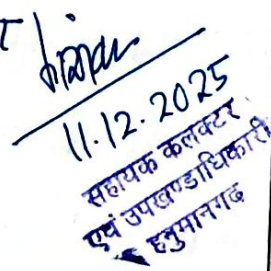 11.12.2025
सहायक कलक्टर
एवं उपखण्डाधिकारी
हनुमानगढ़